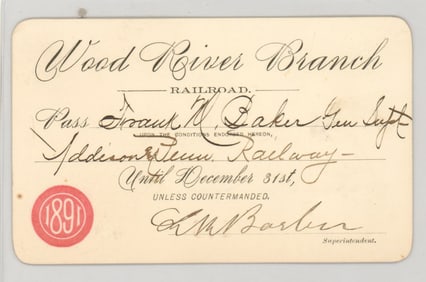 Wood River Branch
RAILROAD.
Pass Frank N. Baker Gen Supt
UPON THE CONDITIONS ENDORSED HEREON,
Addison & Penn. Railway
Until December 31st,
UNLESS COUNTERMANDED.
1891
Barber
Superintendent.